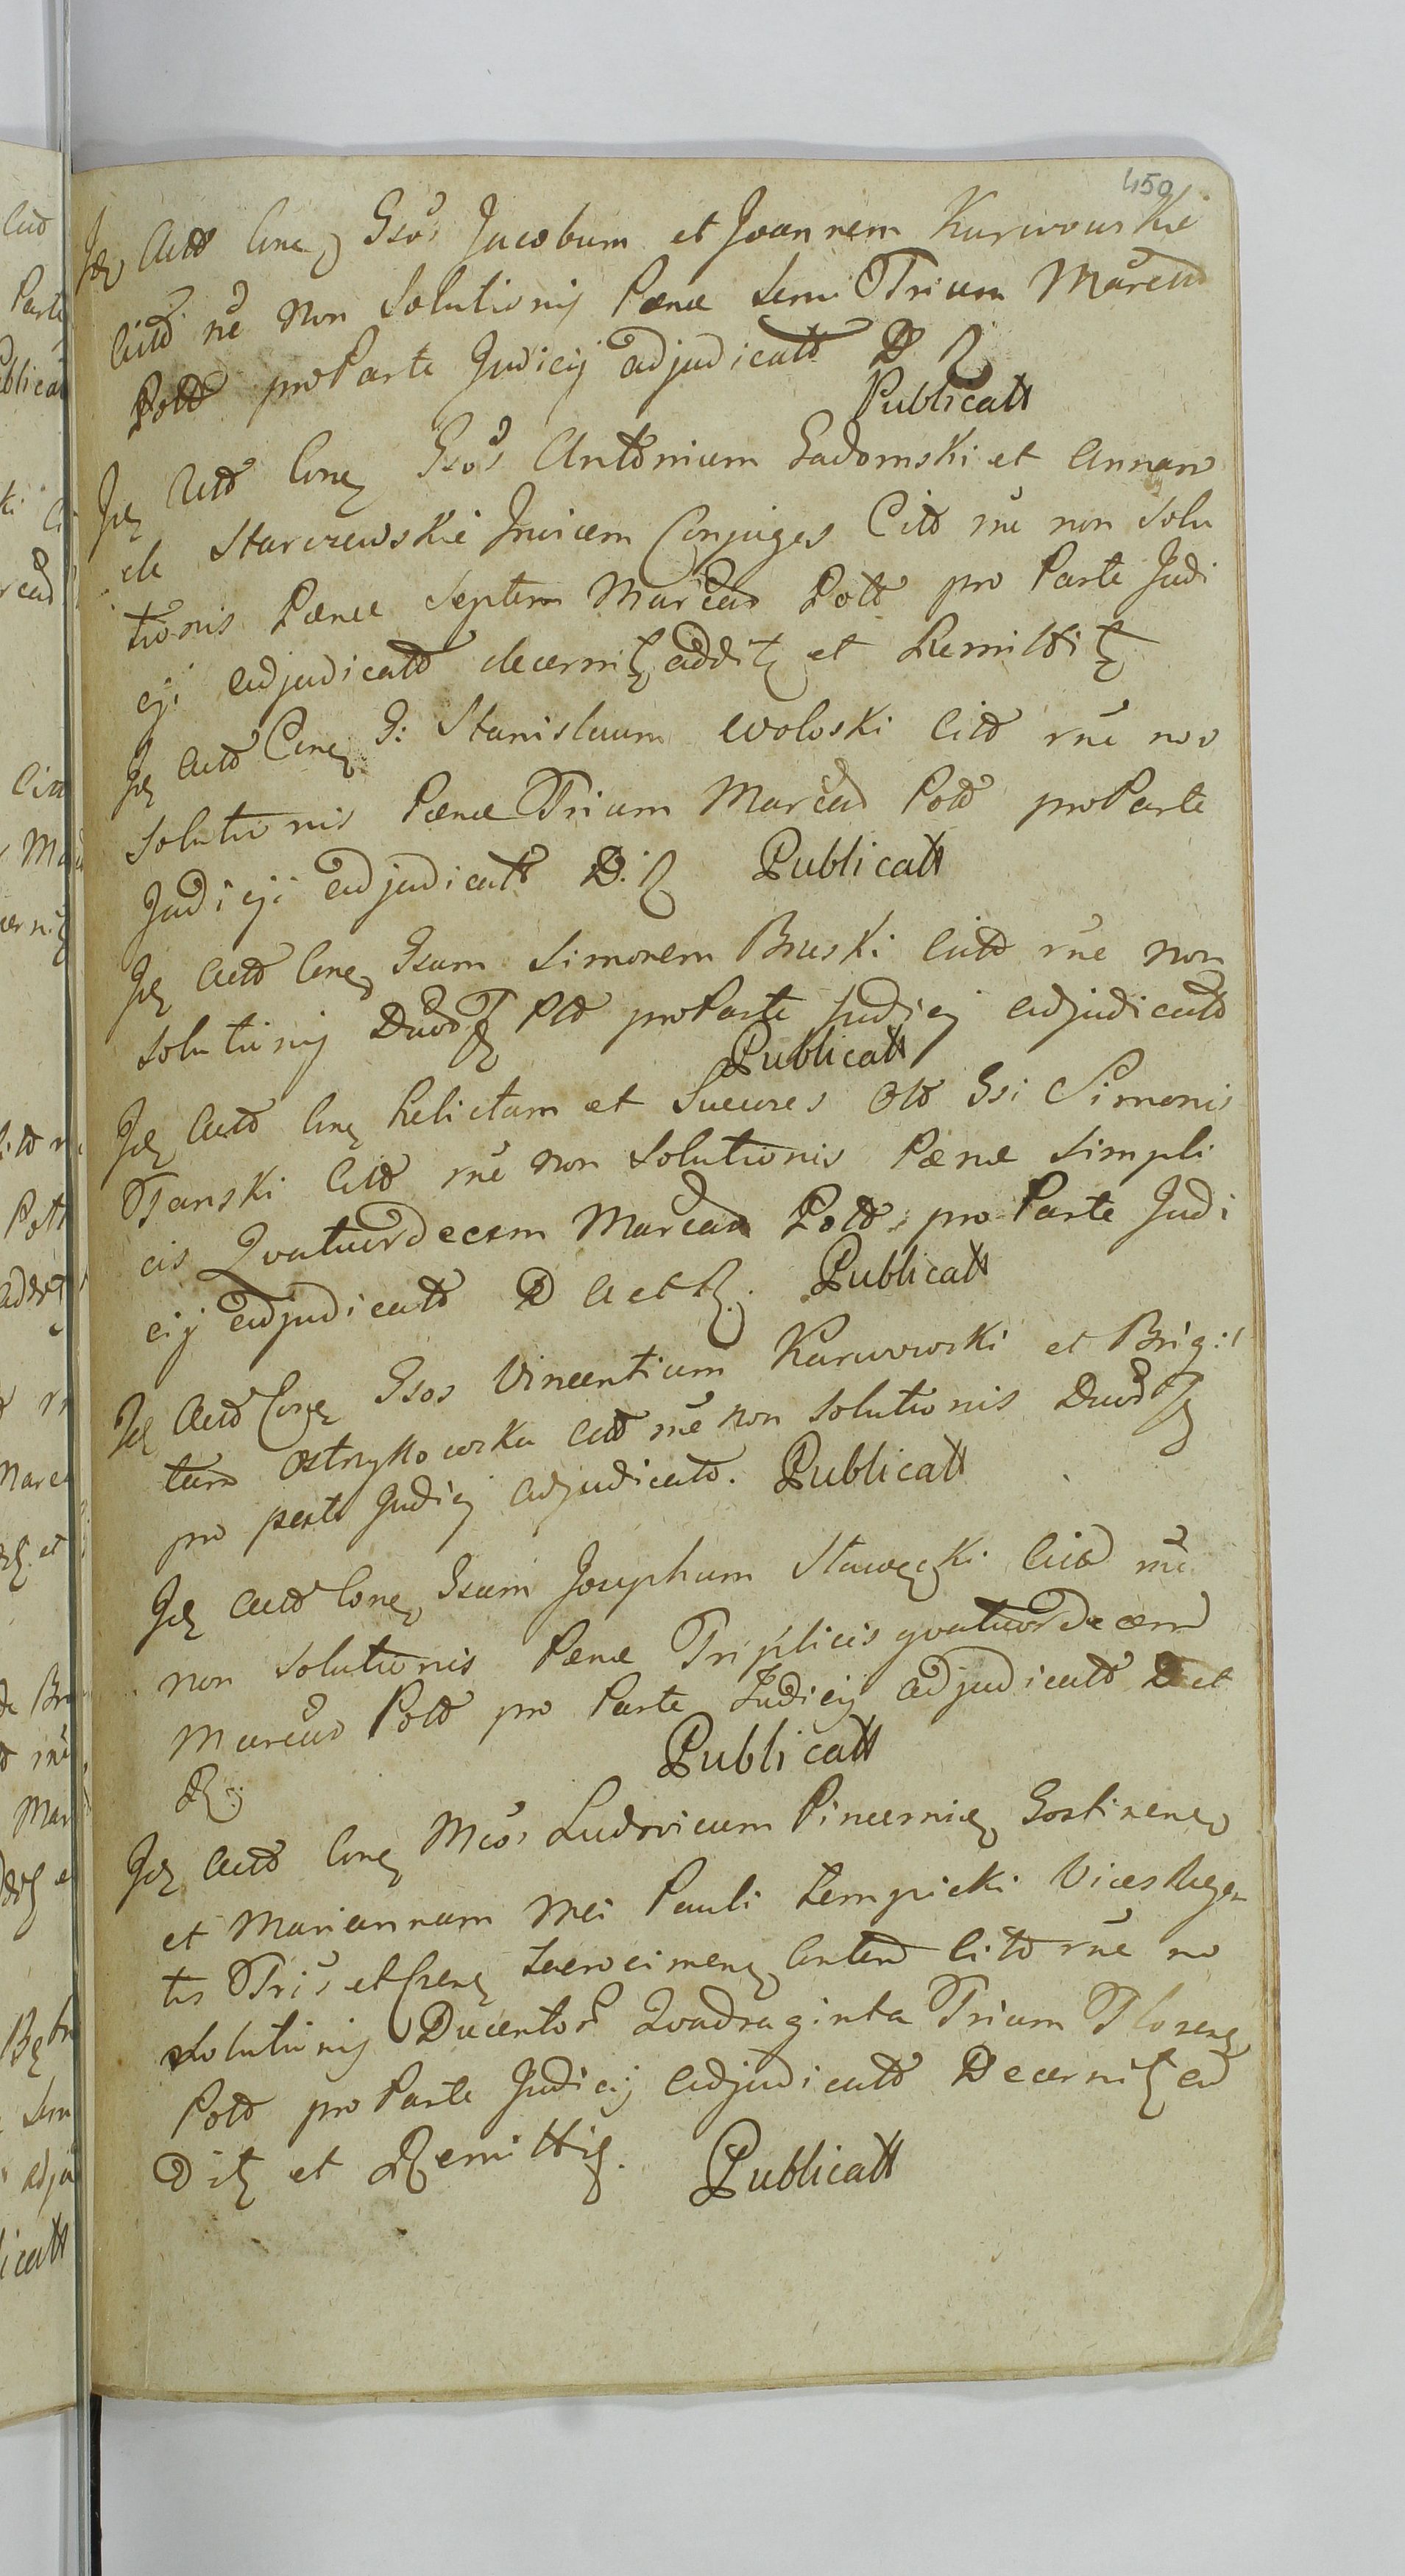 450
Idē Actō Conē Gsōs Jacobum et Joannem Karwowskie
Citō rnē non Solutionis Pænæ Semi Trium Marcar
Potō pro Parte Judicij adjudicatō D R
Publicatt
Idē Actō Conē Gsōs Antonium Gadomski et Annam
de Starczewskie Invicem Conjuges Citō rnē non Solu
tionis Pænæ Septem Marcar Potō pro Parte Judi
cji adjudicatō decernitē additē et Remittitē
Idē Actō Conē G: Stanislaum Woloski Citō rnē non
Solutionis Pænæ Trium Marcar Potō pro Parte
Judicji adjudicatō D. R Publicatt
Idē Actō Conē Gsum Simonem Bruski Citō rnē non
Solutionis Duor Potō pro Parte Judicij adjudicatō
Publicatt
Idē Actō Conē Relictam et Succres Olō Gsi Simonis
Tanski Citō rnē non Solutionis Pænæ Simpli
cis Qvatuordecem Marcar Potō pro Parte Judi
cij adjudicatō D A et R. Publicatt
Idē Actō Conē Gsos Vincentium Karwowski et Brigit
tam Ostrykowska Citō rnē non Solutionis Duor
pro parte Judicij adjudicatō. Publicatt
Idē Actō Conē Gsum Josephum Stawęcki Citō rnē
non Solutionis Pænæ Triplicis qvatuordecem
Marcar Potō pro Parte Judicij adjudicatō D et
R. Publicatt
Idē Actō Conē Mcōs Ludovicum Pincernię Gostinenē
et Mariannam Mci Pauli Zempicki Vices Regen
tis Tris et Cnenē Citō rnē no
Solutionis Ducentor Qvadraginta Trium Florenē
Potō pro Parte Judicij adjudicatō Decernitē ad
Ditē et Remittitē. Publicatt